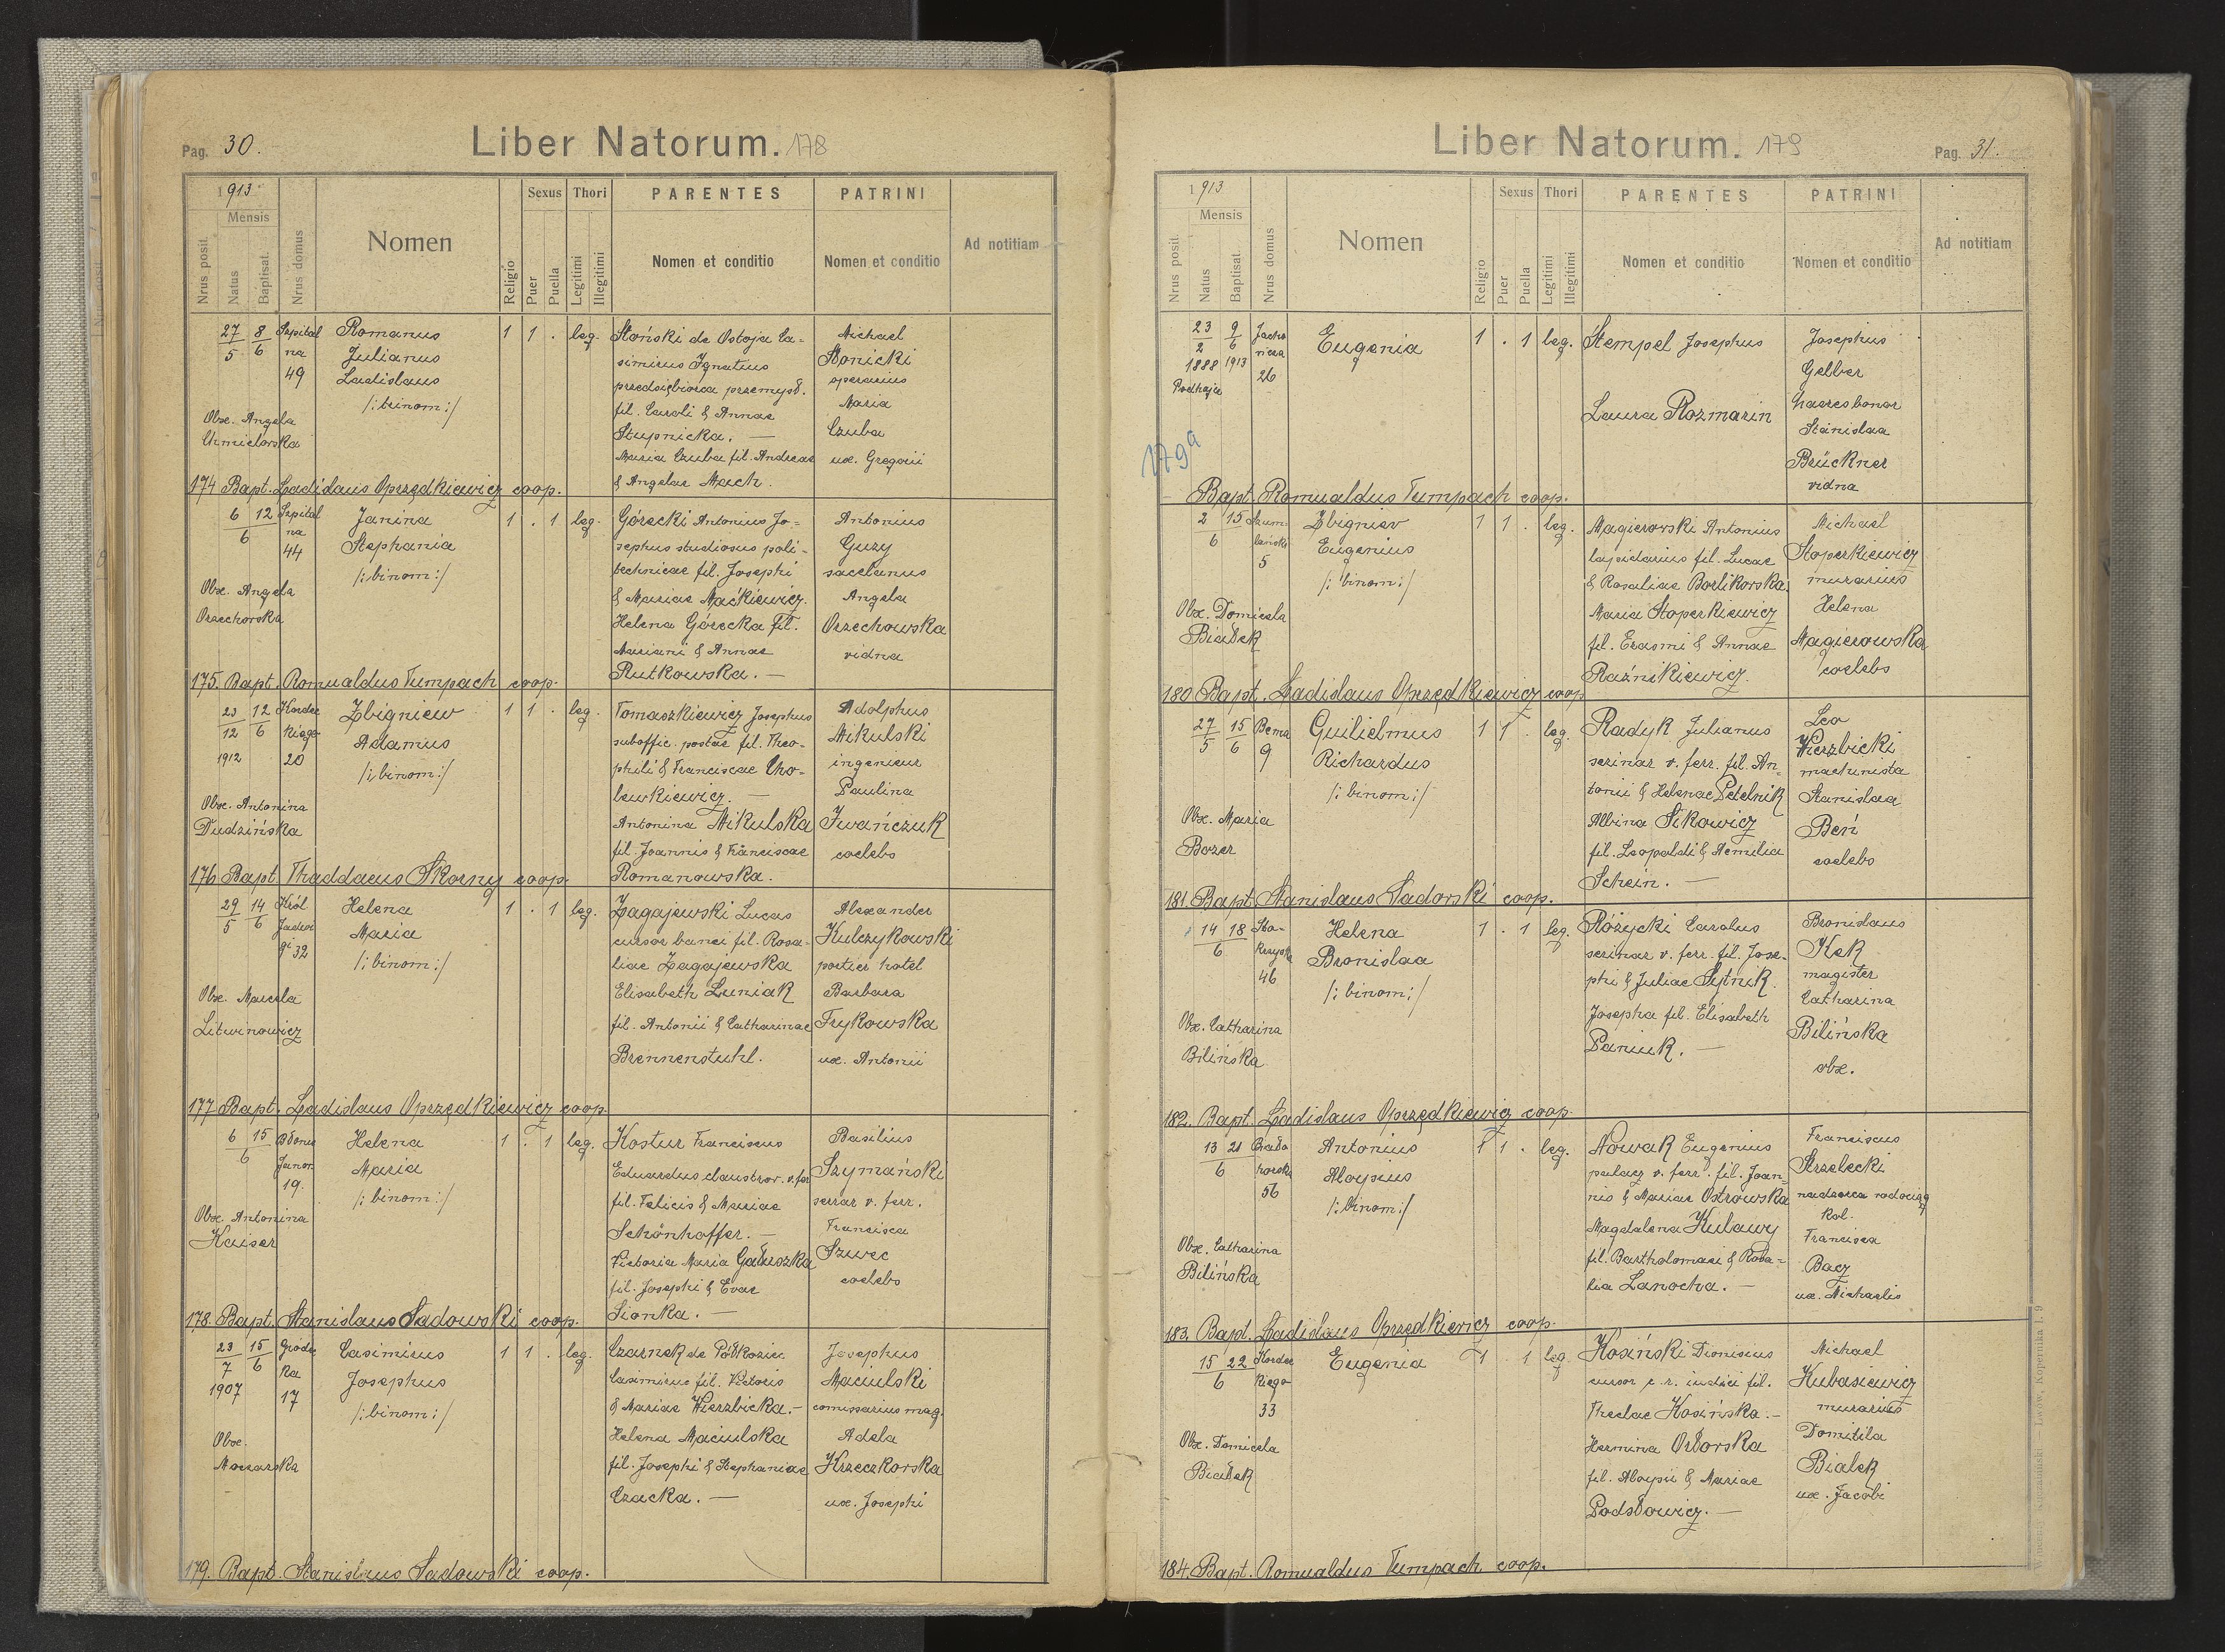 Pag. 30.
Liber Natorum. 178
1913
Mensis
Nrus posit.
Natus
Baptisat.
Nrus domus
Nomen
Religio
Sexus
Puer
Puella
Thori
Legitimi
Illegitimi
PARENTES
Nomen et conditio
PATRINI
Nomen et conditio
Ad notitiam
27/5 8/6 Szpital Romanus 1 1 . leg. Słoński de Ostoja Ca- Michael
na Julianus simirus Ignatius Słonicki
49 Ladislaus przedsiębiorca przemysł. operarius
/: trinom :/ fil. Caroli & Annae Maria
Obx. Angela Stupnicka. — Czuba
Chmielorska Maria Czuba fil. Andreae ux. Gregorii
& Angelae Mach.
174 Bapt. Ladislaus Oprzędkiewicz coop.
6 12/6 Szpital Janina 1 . 1 leg. Górecki Antonius Jo- Antonius
na Stephania sephus studiosus poli- Guzy
44 /: binom :/ technicae fil. Josephi sacelanus
Obx. Angela & Mariae Maćkiewicz. Angela
Orzechorska Helena Górecka fil. Orzechowska
Mariani & Annae vidna
Rutkowska. —
175. Bapt. Romualdus Tumpach coop.
23/12 12/6 Kordec Zbigniew 1 1 . leg. Tomaszkiewicz Josephus Adolphus
1912 kiego Adamus suboffic. postae fil. Theo- Mikulski
20 /: binom :/ phili & Franciscae Cho- ingenieur
Obx. Antonina lewkiewicz. — Paulina
Dudzińska Antonina Mikulska Iwańczuk
fil. Joannis & Franciscae coelebs
Romanowska.
176 Bapt. Thaddaeus Skorny coop.
29/5 14/6 Król Helena 1 . 1 leg. Zagajewski Lucas Alexander
Jadwi Maria cursor banci fil. Rosa- Kulczykowski
gi 32 /: binom :/ liae Zagajewska portier hotel
Obx. Marcela Elisabeth Luniak Barbara
Litwinowicz fil. Antonii & Catharinae Frykowska
Brennenstuhl. ux. Antonii
177 Bapt. Ladislaus Oprzędkiewicz coop.
6 15/6 Błonie Helena 1 . 1 leg. Kostur Franciscus Basilius
Janow. Maria Eduardus claustror. v. fer Szymański
19. /: binom :/ fil. Felicis & Mariae serrar v. ferr.
Obx. Antonina Schönhoffer. — Francisca
Kaiser Victoria Maria Gałuszka Szwec
fil. Josephi & Evae coelebs
Sionka. —
178. Bapt. Stanislaus Sadowski coop.
23/7 15/6 Gródec Casimirus 1 1 . leg. Czarnek de Półkozic Josephus
1907 ka Josephus Casimirus fil. Victoris Maciulski
17 /: binom :/ & Mariae Wierzbicka. — comissarius mag.
Obx. Helena Maciulska Adela
Moczarska fil. Josephi & Stephaniae Krzeczkorska
Czacka. — ux. Josephi
179. Bapt. Stanislaus Sadowski coop.
Liber Natorum. 179
Pag. 31.
1913
Mensis
Nrus posit.
Natus
Baptisat.
Nrus domus
Nomen
Religio
Sexus
Puer
Puella
Thori
Legitimi
Illegitimi
PARENTES
Nomen et conditio
PATRINI
Nomen et conditio
Ad notitiam
23/2 9/6 Jacho Eugenia 1 . 1 leg. Stempel Josephus Josephus
1888 1913 wicza Gelber
Podhajce 26 Laura Rozmarin haeres bonor
Stanislaa
179a Brückner
vidna
Bapt. Romualdus Tumpach coop.
2 15/6 Szum Zbigniev 1 1 . leg. Magierowski Antonius Michael
lański Eugenius lapidarius fil. Lucae Stoperkiewicz
5 /: binom :/ & Rosaliae Borlikorska. murarius
Obx. Domicela Maria Stoperkiewicz Helena
Białek fil. Erasmi & Annae Magierowska
Raźnikiewicz. coelebs
180 Bapt. Ladislaus Oprzędkiewicz coop
27/5 15/6 Bema Guilielmus 1 1 . leg. Radyk Julianus Leo
9 Richardus serinar v. ferr. fil. An- Wierzbicki
/: binom :/ tonii & Helenae Petelnik machinista
Obx. Maria Albina Sikowicz Stanislaa
Bozer fil. Leopoldi & Aemilia Beń
Schein. — coelebs
181. Bapt. Stanislaus Sadorski coop.
14 18/6 Sto- Helena 1 . 1 leg. Różycki Carolus Bronislaus
krzyska Bronislaa serinar v. ferr. fil. Jose- Kek
46 /: binom :/ phi & Juliae Sytnik. magister
Obx. Catharina Josepha fil. Elisabeth Catharina
Bilińska Paniuk. — Bilińska
obx.
182. Bapt. Ladislaus Oprzędkiewicz coop.
13 21/6 Antonius 1 1 . leg. Nowak Eugenius Franciscus
Aloysius palacz v. ferr. fil. Joan- Strzelecki
56 /: binom :/ nis & Mariae Ostrowska nadzorca rodociąg
Obx. Catharina Magdalena Kulawy kol.
Bilińska fil. Bartholomaei & Rosa- Francisca
lia Lanocha. — Bacz
ux. Michaelis
183. Bapt. Ladislaus Oprzędkievicz coop.
15 22/6 Kordec Eugenia 1 . 1 leg. Kosiński Dionisius Michael
kiego cursor c. r. iudici fil. Kubasiewicz
33 Theclae Kosińska. — murarius
Obx. Domicela Hermina Orłorska Domitila
Białek fil. Aloysii & Mariae Bialek
Podsłowicz. — ux. Jacobi
184. Bapt. Romualdus Tumpach coop.
Lwów, Kopernika l. 9